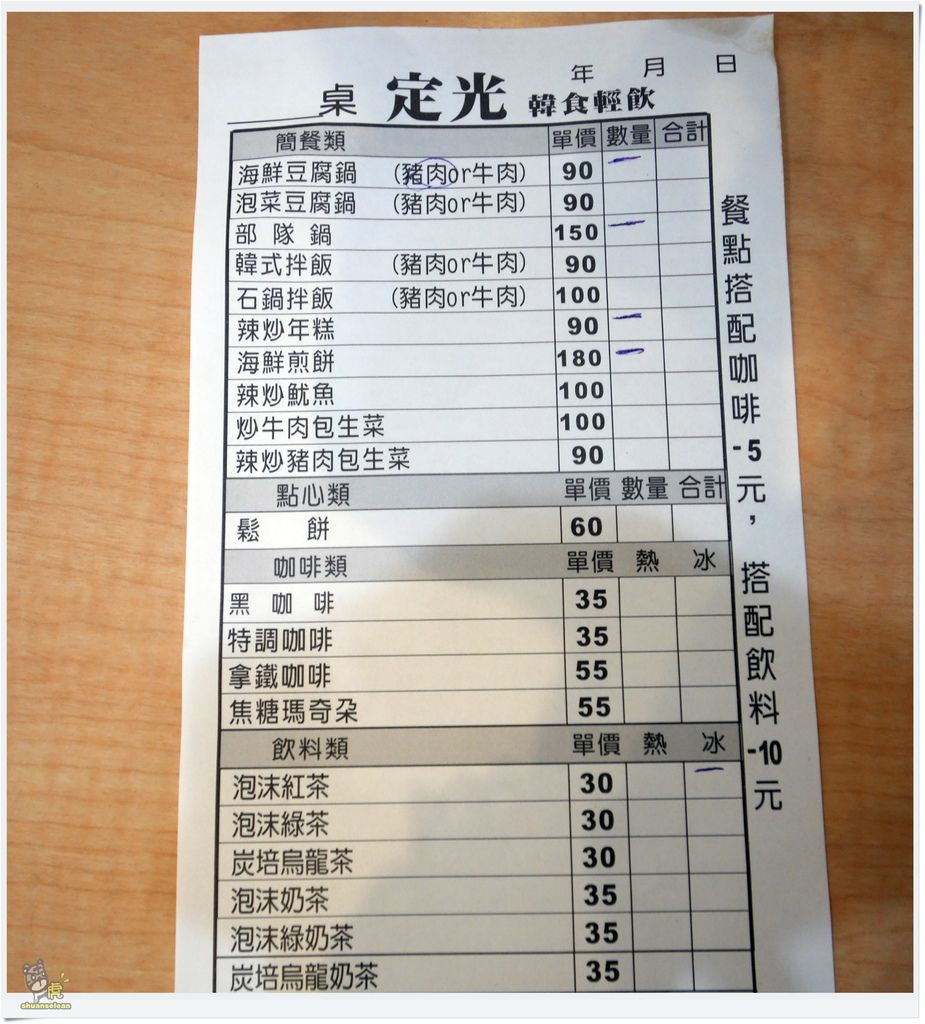 年 月 日
桌 定光 韓食輕飲
簡餐類 單價 數量 合計
海鮮豆腐鍋 (豬肉or牛肉) 90 一
泡菜豆腐鍋 (豬肉or牛肉) 90
部隊鍋 150 一
韓式拌飯 (豬肉or牛肉) 90
石鍋拌飯 (豬肉or牛肉) 100
辣炒年糕 90 一
海鮮煎餅 180 一
辣炒魷魚 100
炒牛肉包生菜 100
辣炒豬肉包生菜 90
點心類 單價 數量 合計
鬆餅 60
咖啡類 單價 熱 冰
黑咖啡 35
特調咖啡 35
拿鐵咖啡 55
焦糖瑪奇朵 55
飲料類 單價 熱 冰
泡沫紅茶 30 一
泡沫綠茶 30
炭培烏龍茶 30
泡沫奶茶 35
泡沫綠奶茶 35
炭培烏龍奶茶 35
餐點搭配咖啡-5元，搭配飲料-10元
虎
shuanselean